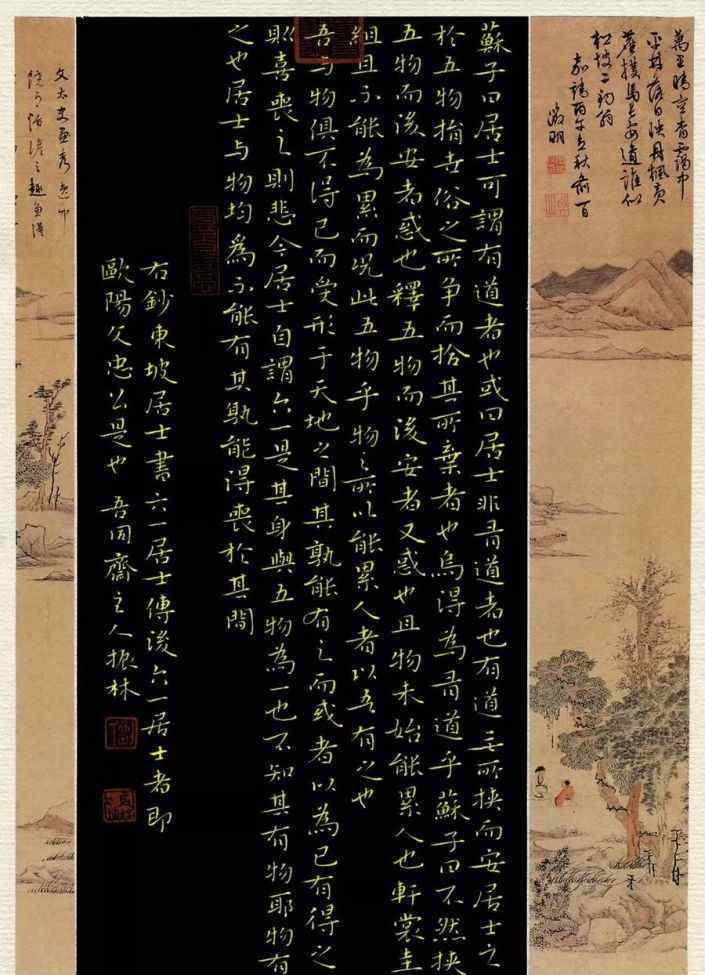 萬里晴空青靄中
嘉靖丙午立秋前一日
徵明
蘇子曰居士可謂有道者也或曰居士非有道者也有道无所挾而安居士之
於五物捐世俗之所爭而拾其所棄者也烏得為有道乎蘇子曰不然挾
五物而後安者惑也釋五物而後安者又惑也且物未始能累人也軒裳圭
組且不能為累而況此五物乎物之所以能累人者以吾有之也
吾与物俱不得已而受形于天地之間其孰能有之而或者以為己有得之
則喜喪之則悲今居士自謂六一是其身與五物為一也不知其有物耶物有
之也居士与物均為不能有其孰能得喪於其間
右鈔東坡居士書六一居士傳後六一居士者即
歐陽文忠公是也 吾同齋主人振林
文太史畫